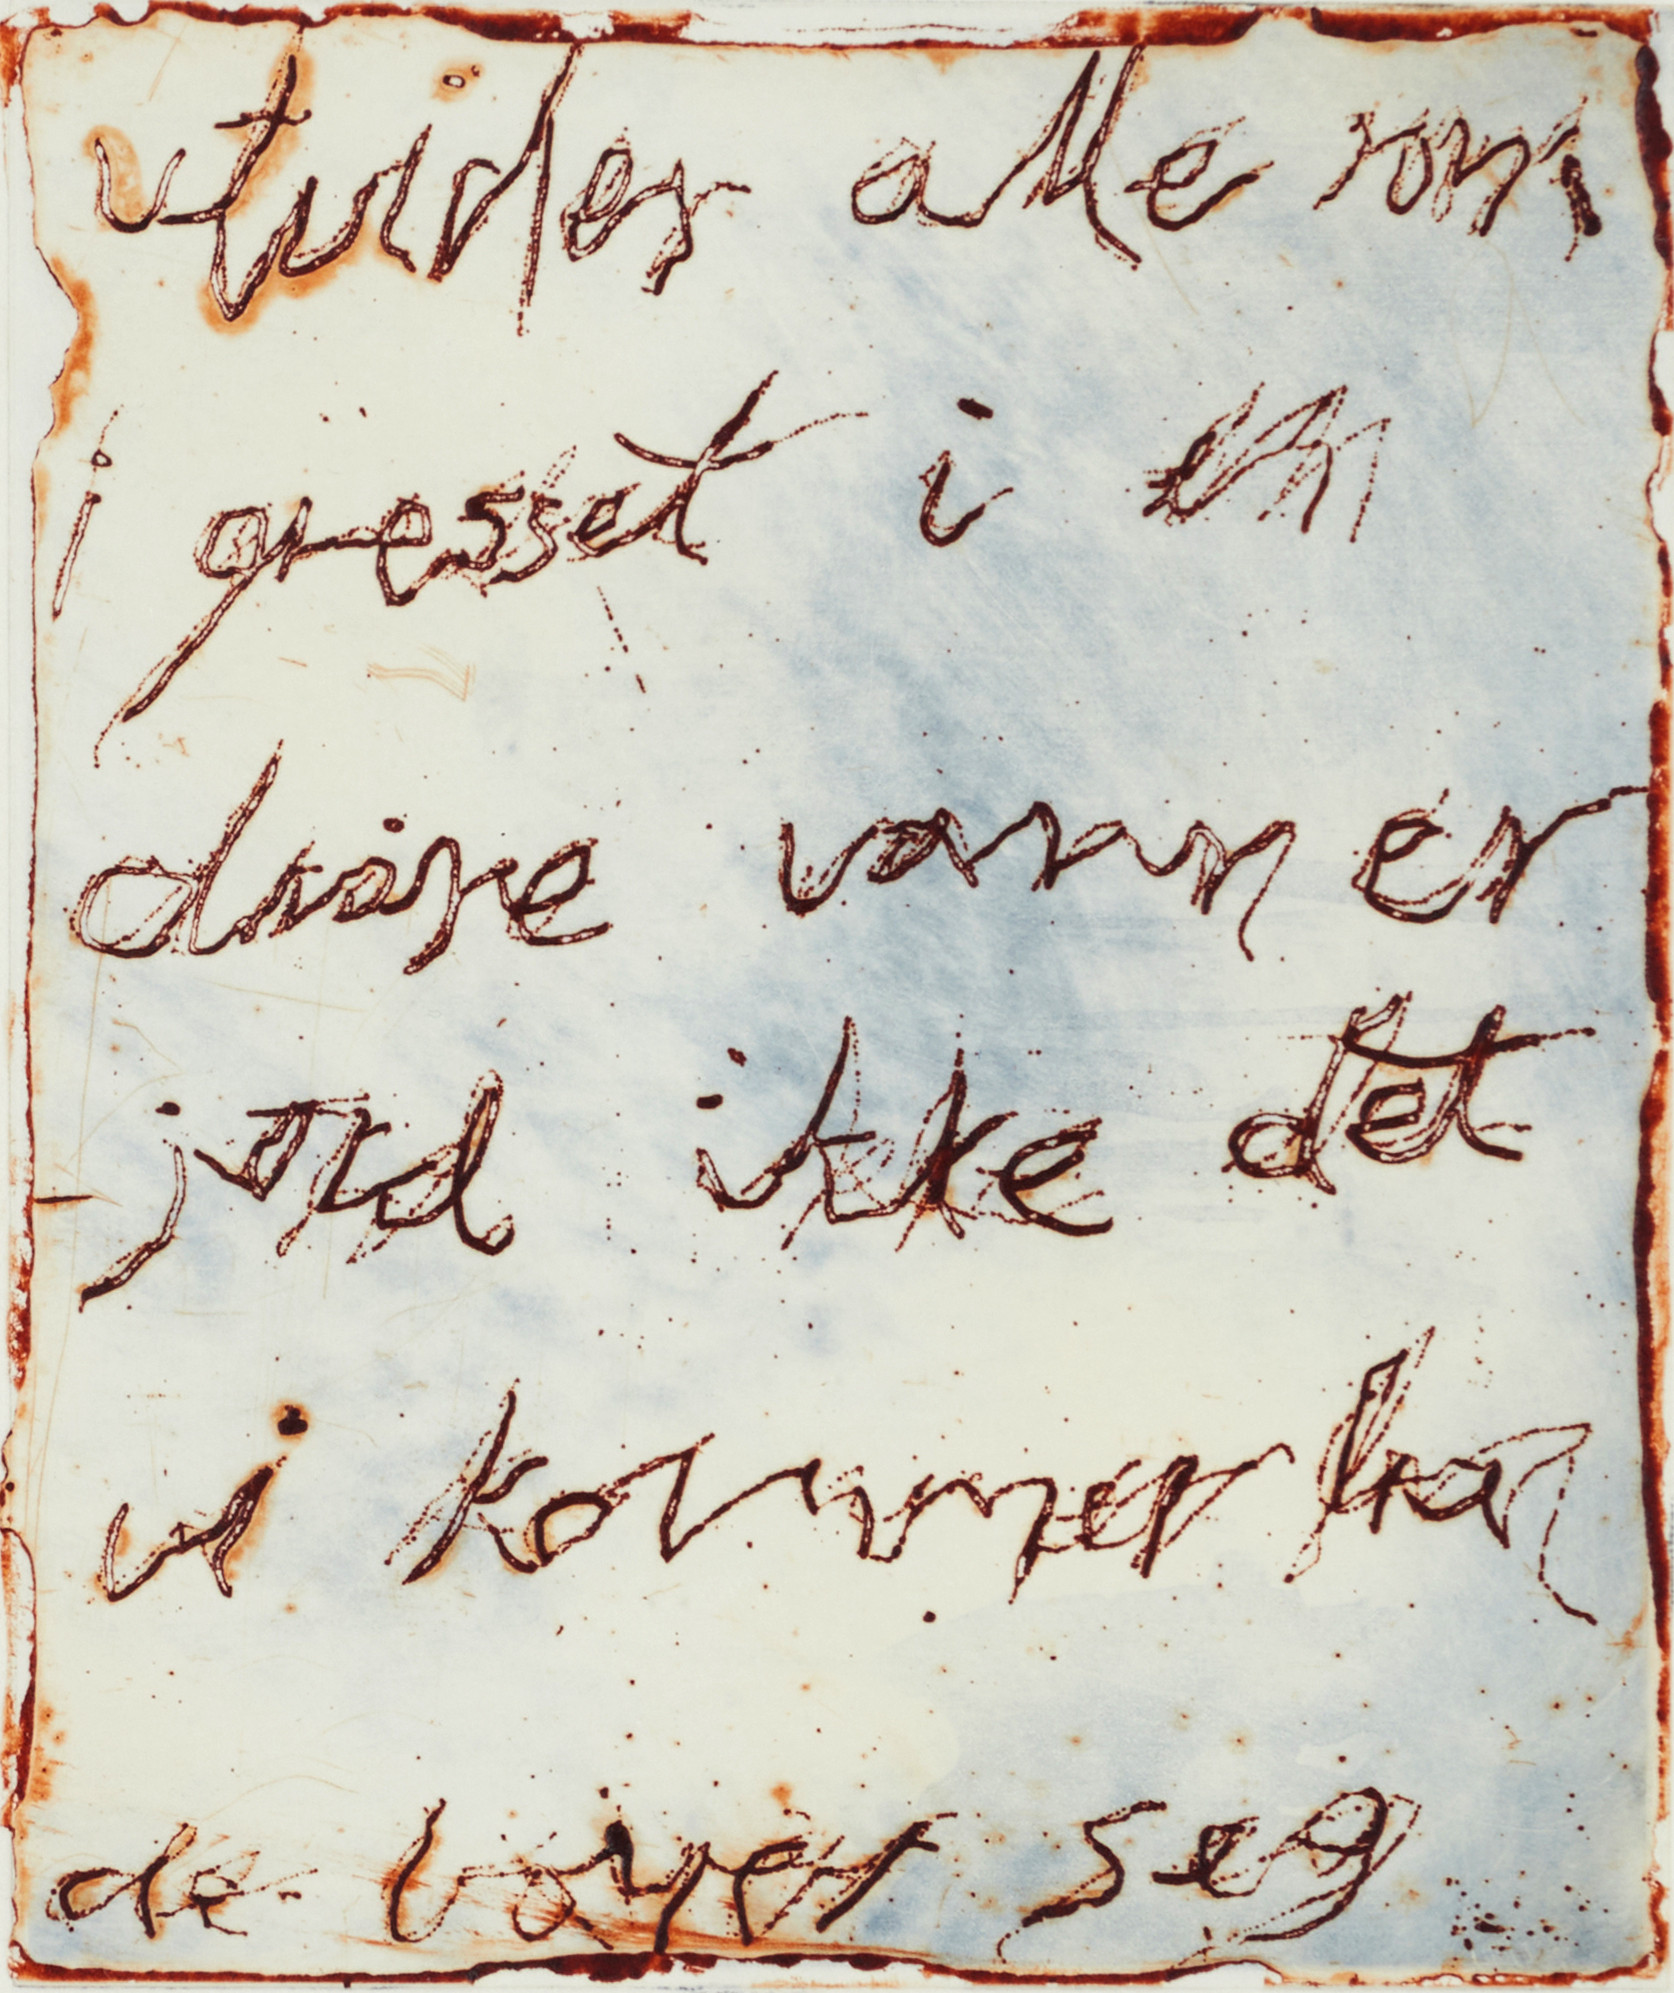 utvider alle rom
i gresset i en
dråpe vann er
jord ikke det
vi kommer fra
de bøyer seg